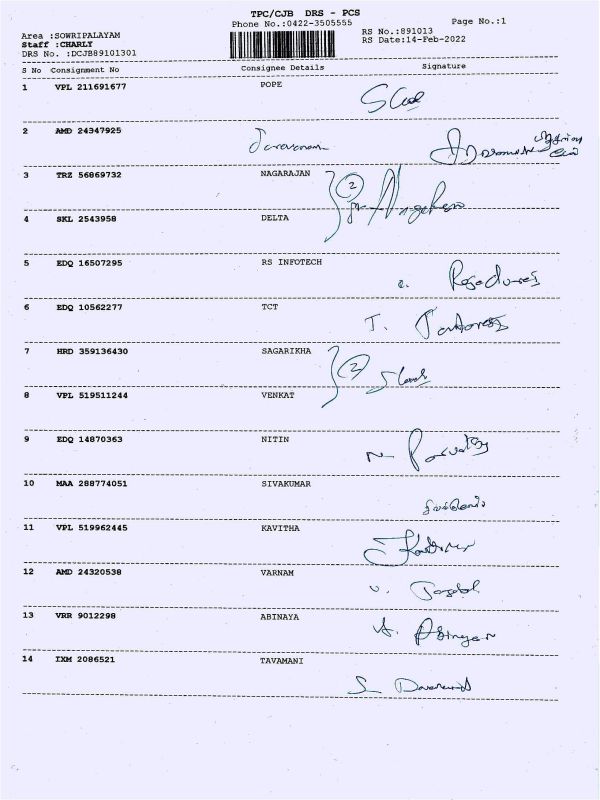 TPC/CJB DRS - PCS
Phone No.:0422-3505555
Page No.:1
Area :SOWRIPALAYAM
RS No.:891013
Staff :CHARLY
RS Date:14-Feb-2022
DRS No. :DCJB89101301
S No Consignment No Consignee Details Signature
1 VPL 211691677 POPE
2 AMD 24347925 Saravanan
3 TRZ 56869732 NAGARAJAN
2
4 SKL 2543958 DELTA
5 EDQ 16507295 RS INFOTECH
6 EDQ 10562277 TCT
7 HRD 359136430 SAGARIKHA
2
8 VPL 519511244 VENKAT
9 EDQ 14870363 NITIN
10 MAA 288774051 SIVAKUMAR
11 VPL 519962445 KAVITHA
12 AMD 24320538 VARNAM
13 VRR 9012298 ABINAYA
14 IXM 2086521 TAVAMANI